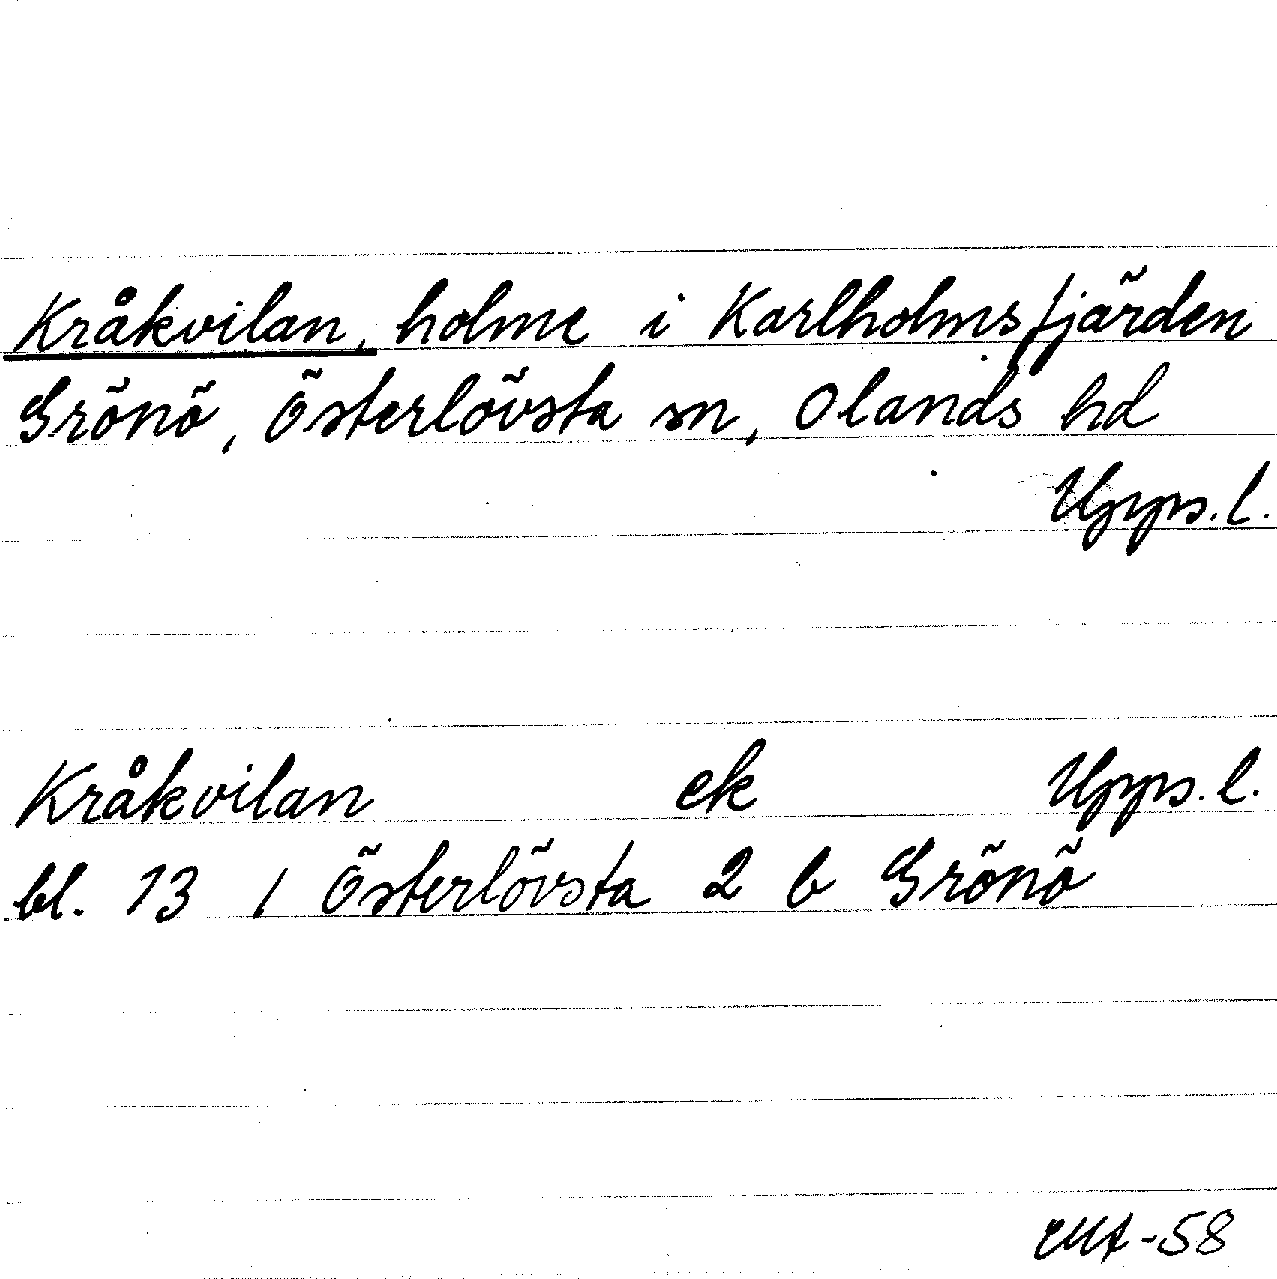 Kråkvilan, holme i Karlholmsfjärden
Grönö, Österlövsta sn, Olands hd
Upps. l.
Kråkvilan ek Upps. l.
bl. 13 / Österlövsta 2 b Grönö
-58